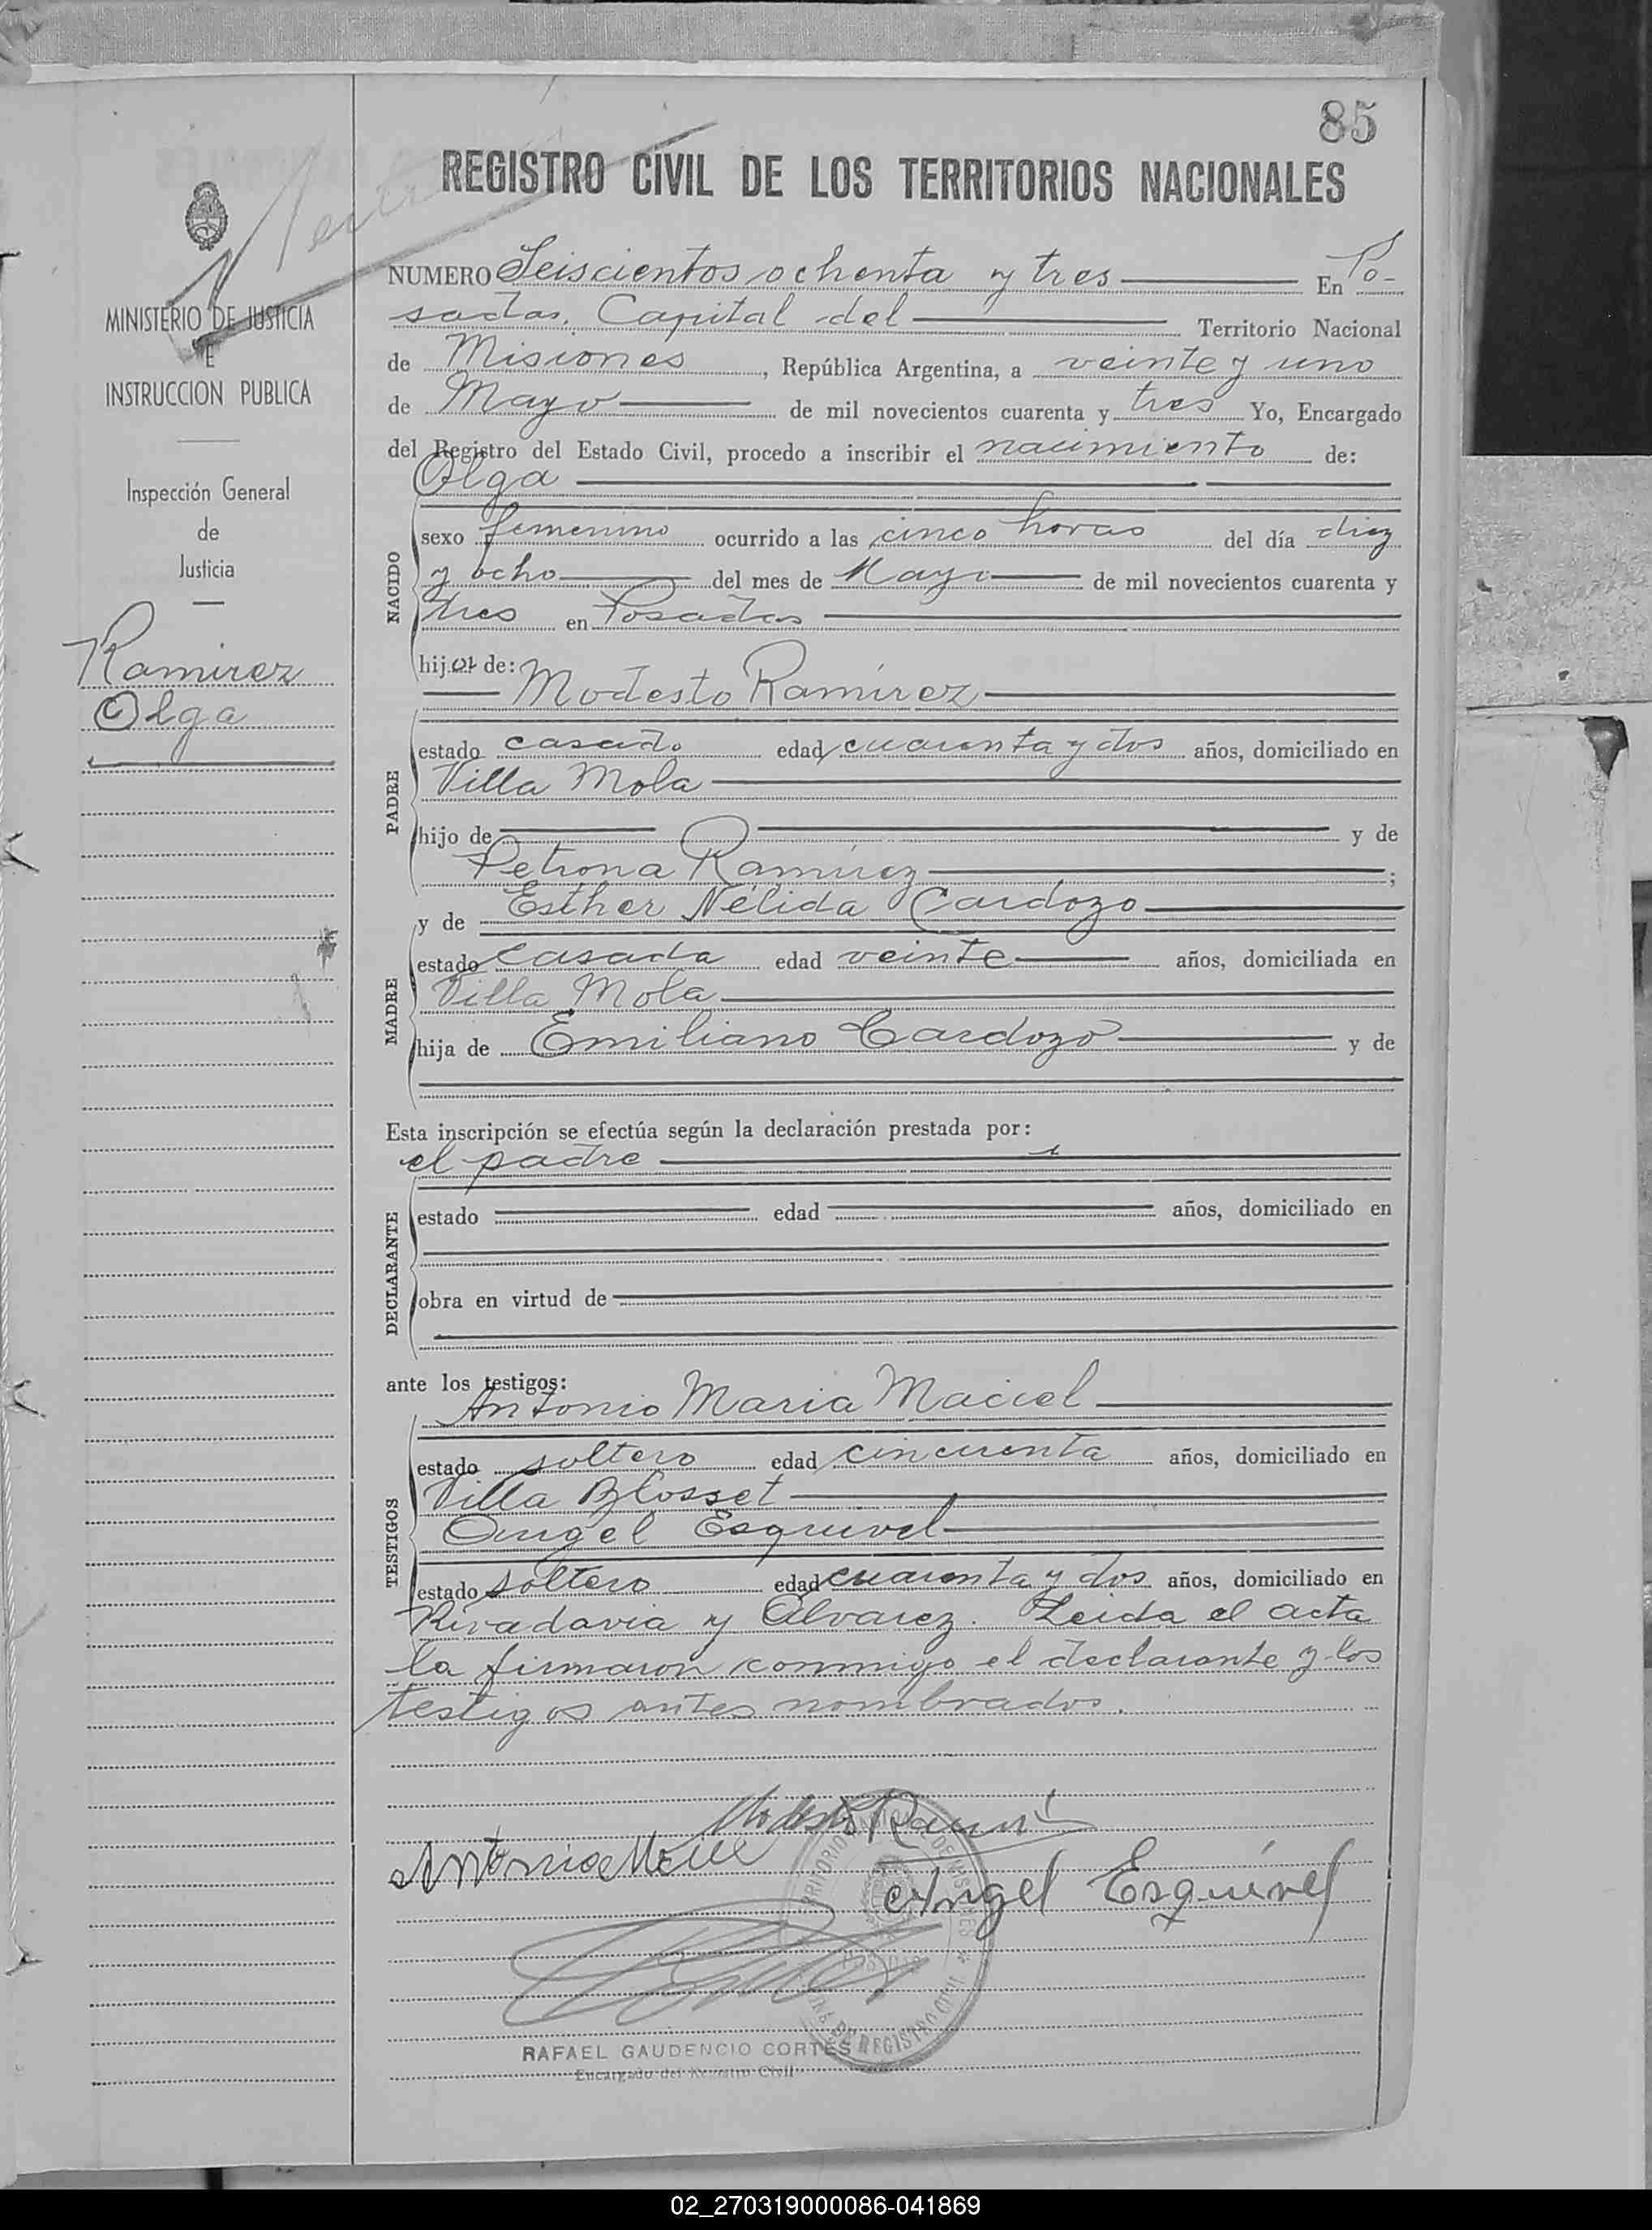 85
REGISTRO CIVIL DE LOS TERRITORIOS NACIONALES
MINISTERIO DE JUSTICIA
E
INSTRUCCION PUBLICA
Inspección General
de
Justicia
Ramirez
Olga
NUMERO Seiscientos ochenta y tres En Po-
sadas, Capital del Territorio Nacional
de Misiones, República Argentina, a veinte y uno
de Mayo de mil novecientos cuarenta y tres Yo, Encargado
del Registro del Estado Civil, procedo a inscribir el nacimiento de:
Olga
NACIDO
sexo femenino ocurrido a las cinco horas del día diez
y ocho del mes de Mayo de mil novecientos cuarenta y
tres en Posadas
hija de:
Modesto Ramirez
PADRE
estado casado edad cuarenta y dos años, domiciliado en
Villa Mola
hijo de y de
Petrona Ramirez;
y de Esther Nélida Cardozo
MADRE
estado casada edad veinte años, domiciliada en
Villa Mola
hija de Emiliano Cardozo y de
Esta inscripción se efectúa según la declaración prestada por:
el padre
DECLARANTE
estado edad años, domiciliado en
obra en virtud de
ante los testigos:
Antonio Maria Maciel
TESTIGOS
estado soltero edad cincuenta años, domiciliado en
Villa Blosset
Angel Esquivel
estado soltero edad cuarenta y dos años, domiciliado en
Rivadavia y Alvarez. Leida el acta
la firmaron conmigo el declarante y los
testigos antes nombrados.
Modesto Ramir
Angel Esquivel
RAFAEL GAUDENCIO CORTES
Encargado del Registro Civil
02_270319000086-041869